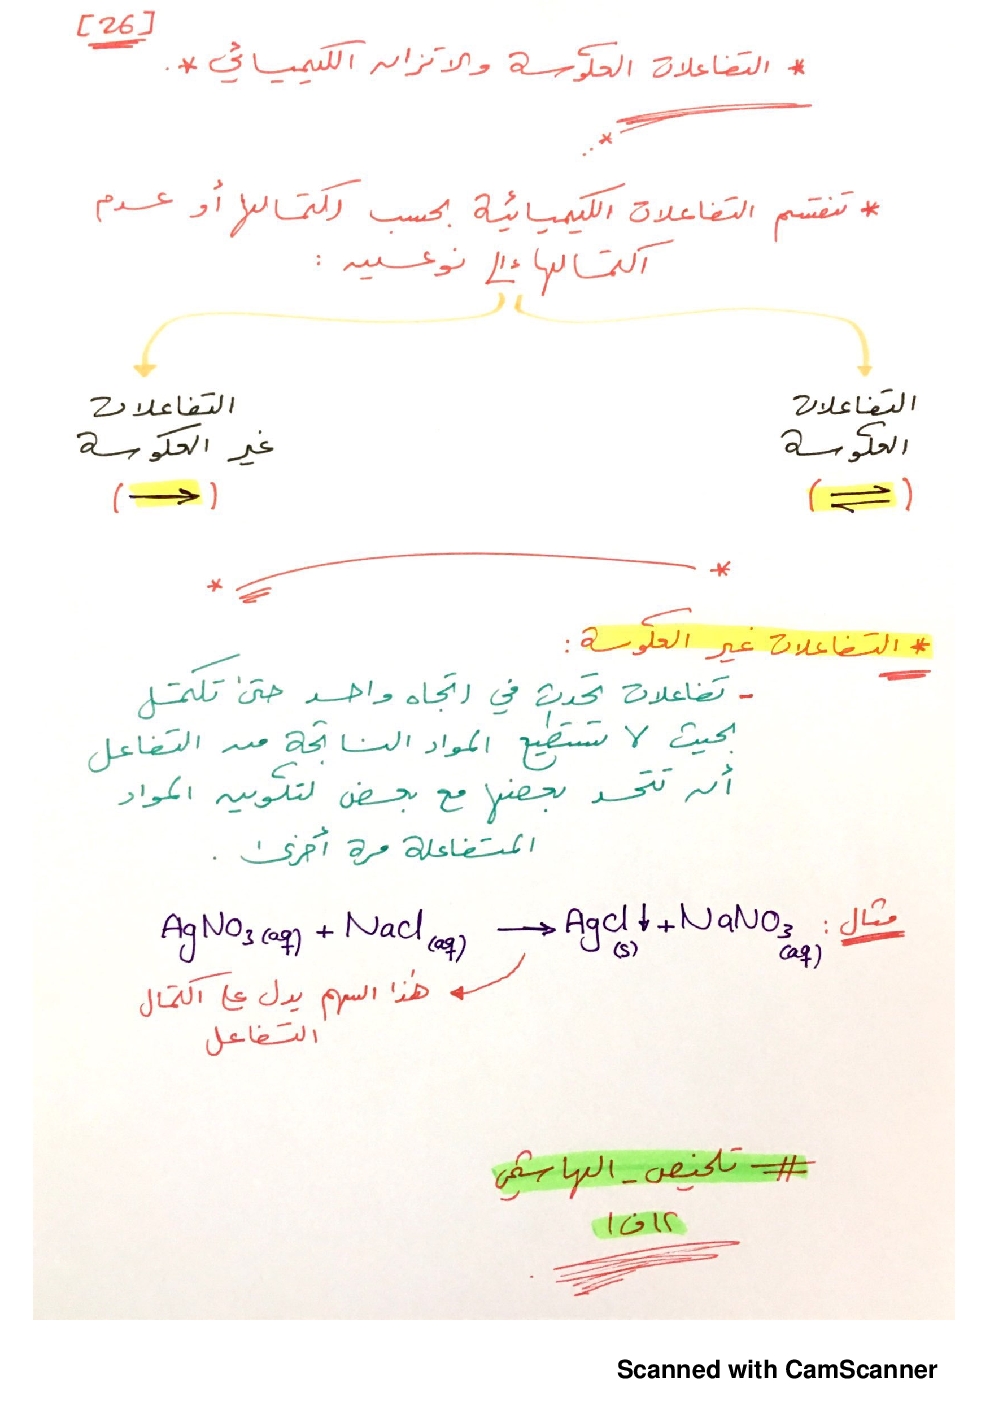 [26]
* التفاعلات العكوسة والاتزان الكيميائي *.
* تنقسم التفاعلات الكيميائية بحسب اكتمالها أو عدم
اكتمالها إلى نوعين :
التفاعلات
العكوسة
(⇌)
التفاعلات
غير العكوسة
(→)
* التفاعلات غير العكوسة :
- تفاعلات تحدث في اتجاه واحد حتى تكتمل
بحيث لا تستطيع المواد الناتجة من التفاعل
أن تتحد بعضها مع بعض لتكوين المواد
المتفاعلة مرة أخرى .
مثال : AgNO3(aq) + Nacl(aq) → Agcl↓(s) + NaNO3(aq)
هذا السهم يدل على اكتمال
التفاعل
# تلخيص_الهاشمي
١٢ف١
Scanned with CamScanner